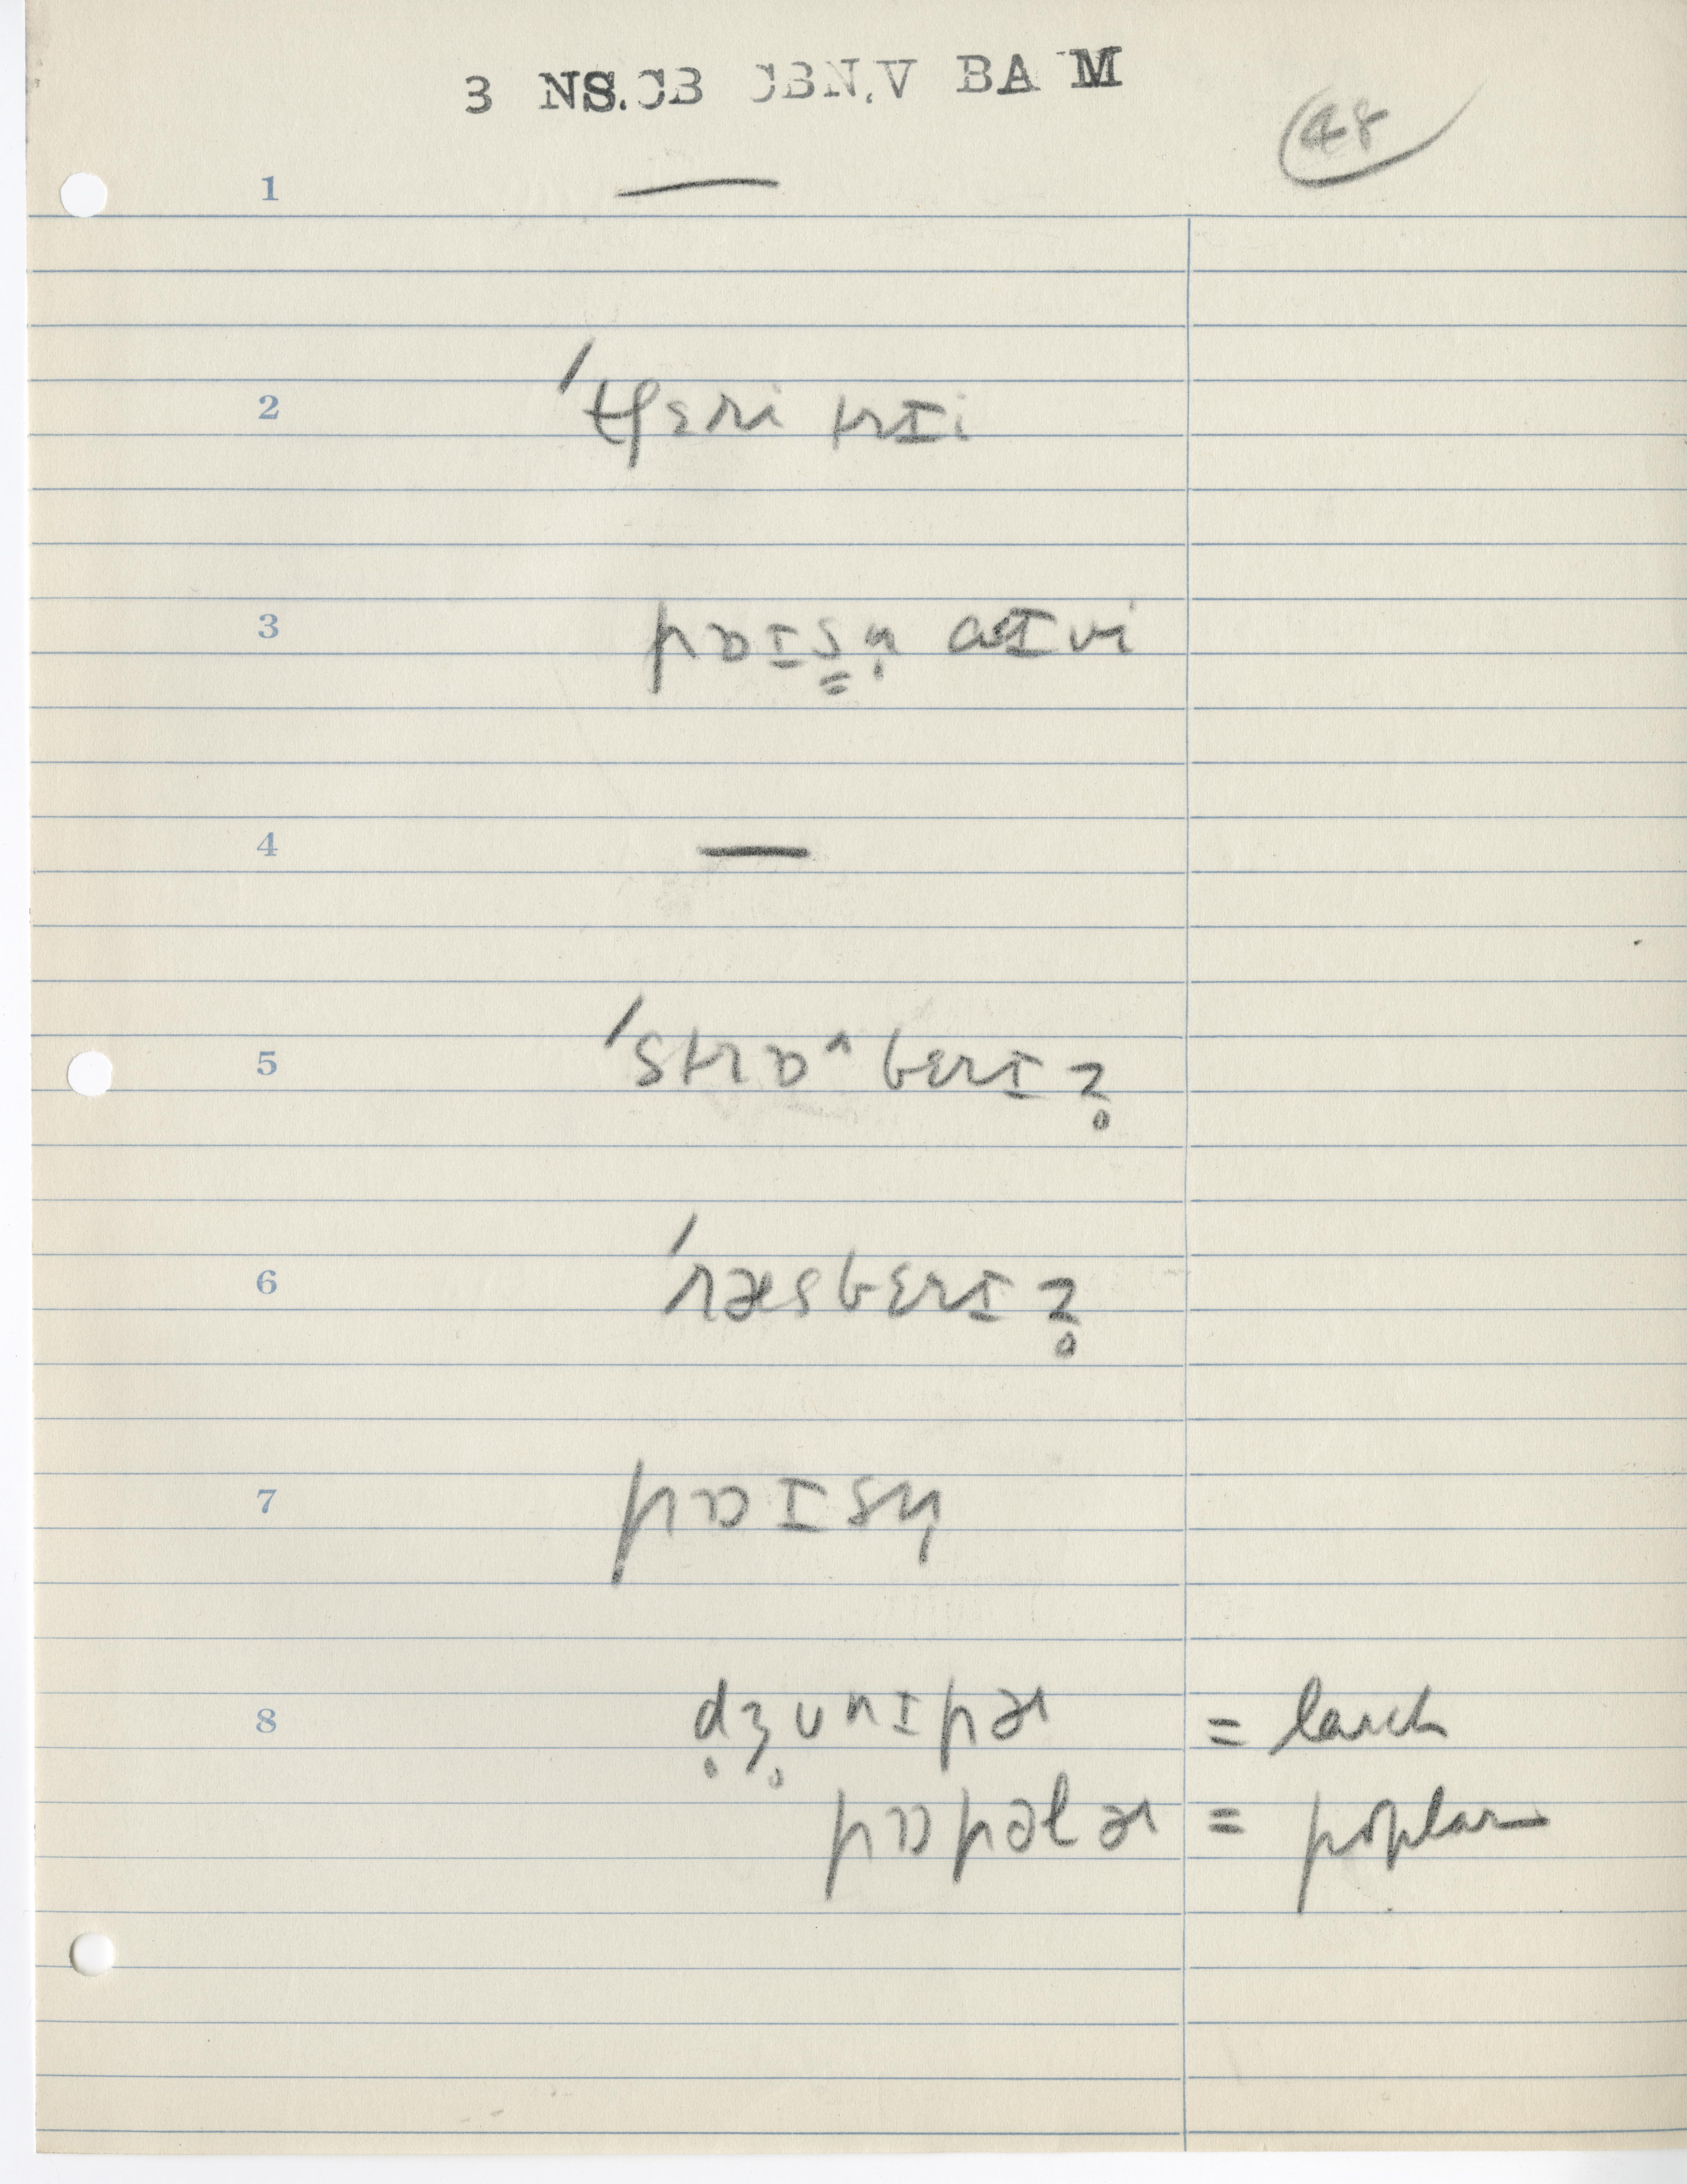 3 NS.CB CBN.V BA M
48
1 —
2 ˈtʃɛri trɪi
3 pɒɪs̳n̩ aɪvi
4 —
5 ˈstrɒ^bɛrɪz̥
6 ˈræsbɛrɪz̥
7 pɒɪsn̩
8 d̥ʒ̊unɪpɚ = larch
pɒpəlɚ = poplar